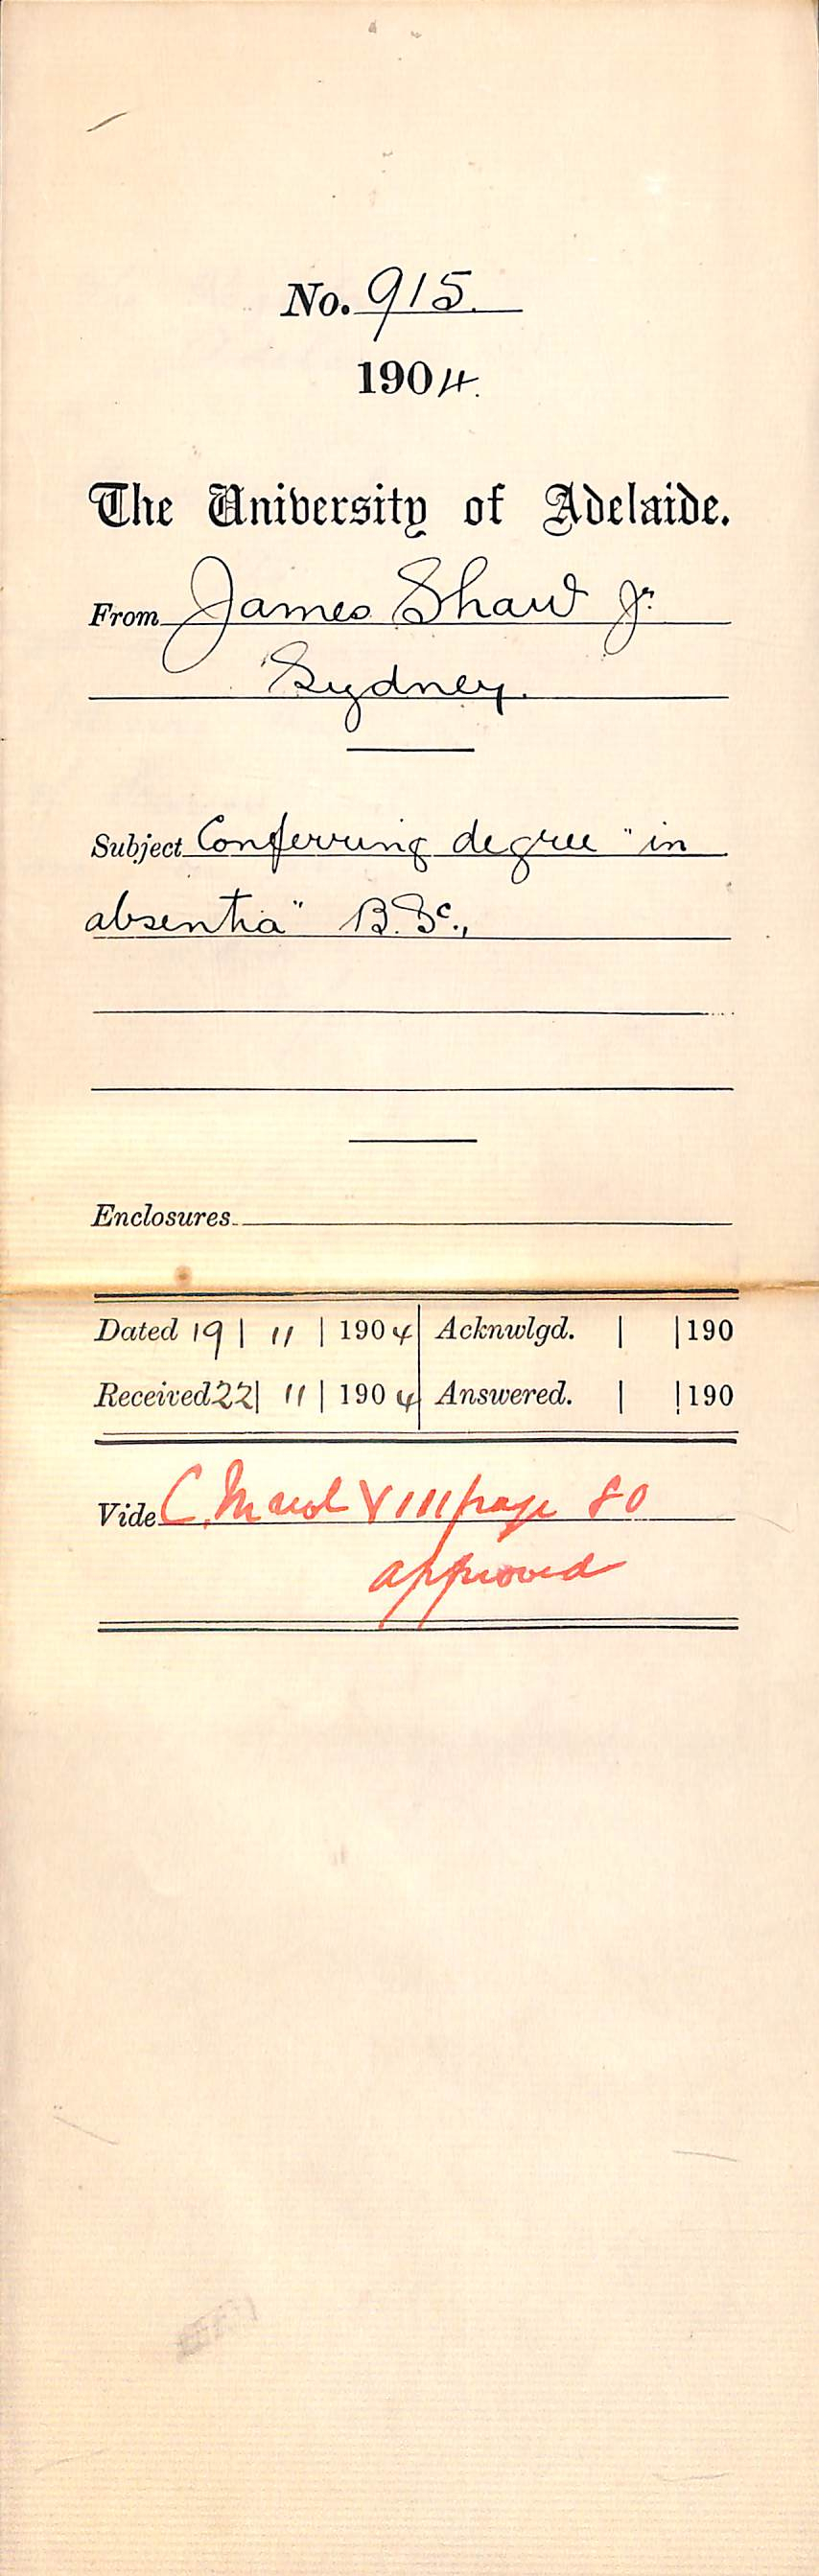 No. 915.
1904.
The University of Adelaide.
From James Shaw Jr.
Sydney.
Subject Conferring degree "in
absentia" B.Sc.,
Enclosures
Dated 19 | 11 | 1904 Acknwlgd. | | 190
Received 22 | 11 | 1904 Answered. | | 190
Vide C. M vol VIII page 80
approved